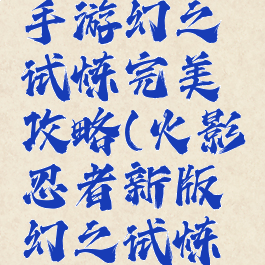 手游幻之
试炼完美
攻略(火影
忍者新版
幻之试炼